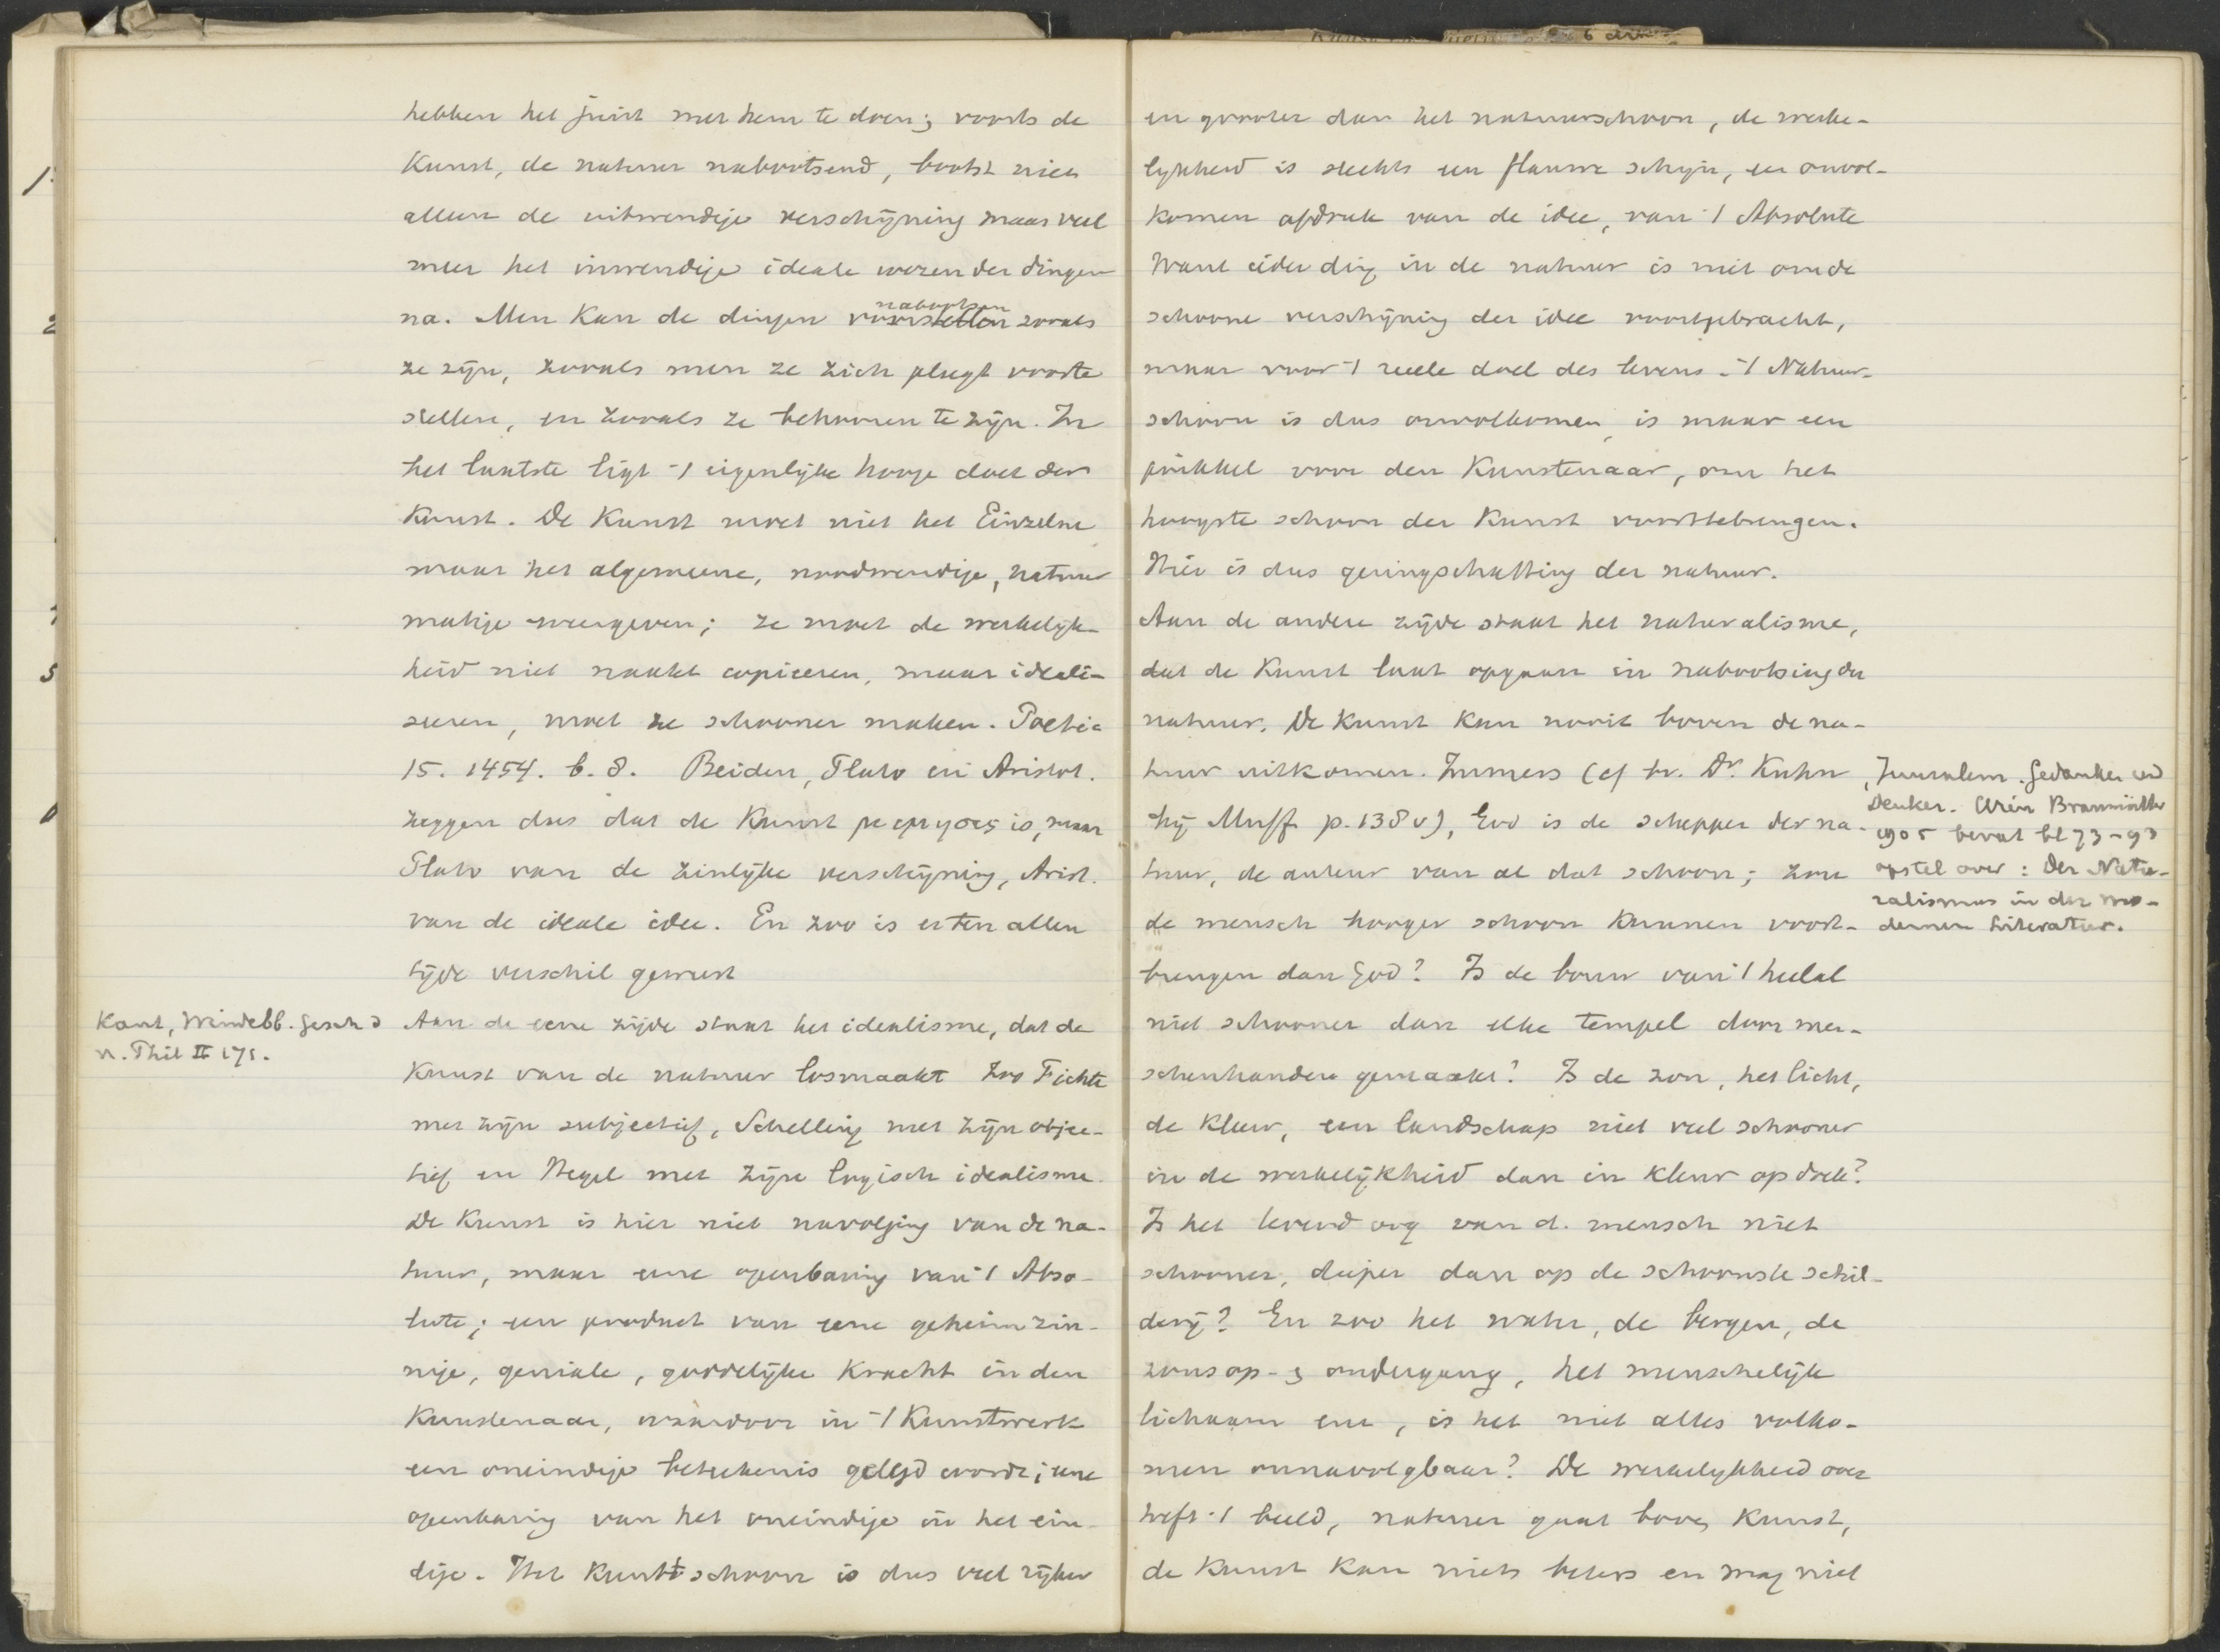 hebben het juist met hem te doen; voorts de
Kunst, de natuur nabootsend, bootst niet
alleen de uitwendige verschijning maar veel
meer het inwendige ideale wezen der dingen
na. Men kan de dingen nabootsen zooals
ze zijn, zooals men ze zich pleegt voorte
stellen, en zooals ze behooren te zijn. In
het laatste ligt -t eigenlijke hooge doel der
Kunst. De Kunst moet niet het Einzelne
maar het algemeene, noodwendige, natuur
matige weergeven; ze moet de werkelijk-
heid niet naakt copieeren, maar ideali-
seeren, moet ze schooner maken. Poetic
15. 1454. b. 8. Beiden, Plato en Aristot.
zeggen dus dat de Kunst μιμησις is, maar
Plato van de zinlijke verschijning, Arist.
van de ideale idee. En zoo is er ten allen
tijde verschil geweest
Kant, Windelb. Gesch d
n. Phil II 171.
Aan de eene zijde staat het idealisme, dat de
Kunst van de natuur losmaakt Zoo Fichte
met zijn subjectief, Schelling met zijn objec-
tief en Hegel met zijn logisch idealisme.
De Kunst is hier niet navolging van de na-
tuur, maar eene openbaring van -t Abso-
lute; een product van eene geheimzin-
nige, geniale, goddelijke Kracht in den
Kunstenaar, waardoor in -t Kunstwerk
een oneindige beteekenis gelegd wordt; eene
openbaring van het oneindige in het ein-
dige. Het Kunstschoon is dus veel rijker
en grooter dan het natuurschoon, de werke-
lijkheid is slechts een flauwe schijn, een onvol-
komen afdruk van de idee, van -t Absolute
Want ieder ding in de natuur is niet om de
schoone verschijning der idee voortgebracht,
maar voor -t reele doel des levens. -t Natuur-
schoon is dus onvolkomen, is maar een
prikkel voor den Kunstenaar, om het
hoogste schoon der Kunst voorttebrengen.
Hier is dus geringschatting der natuur.
Aan de andere zijde staat het naturalisme,
dat de Kunst laat opgaan in nabootsing der
natuur. De Kunst kan nooit boven de na-
tuur uitkomen. Immers (cf br. Dr. Kuhn
bij Muff p. 138 v), God is de schepper der na-
tuur, de auteur van al dat schoon; zou
de mensch hooger schoon kunnen voort-
brengen dan God? Is de bouw van -t heelal
niet schooner dan elke tempel door men-
schenhanden gemaakt? Is de zon, het licht,
de kleur, een landschap niet veel schooner
in de werkelijkheid dan in kleur op doek?
Is het levend oog van d. mensch niet
schooner, dieper dan op de schoonste schil-
derij? En zoo het water, de bergen, de
zonsop- & ondergang, het menschelijk
lichaam enz, is het niet alles volko-
men onnavolgbaar? De werkelijkheid over
treft -t beeld, natuur gaat boven Kunst,
de Kunst kan niets beters en mag niet
Jerusalem. Gedanken und
Denker. Wien Braumüller
1905 bevat bl 73-93
opstel over: Der Natu-
ralismus in der mo-
dernen Literatur.